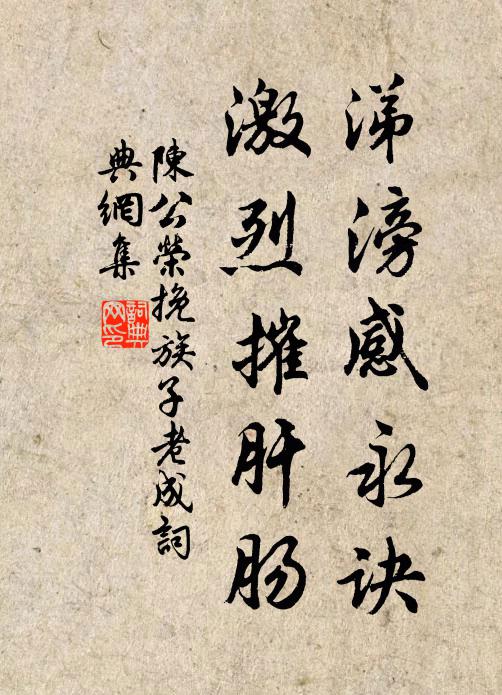 涕滂感永诀
激烈摧肝肠
陳公榮挽族子老成詞
典網集
詞典網印